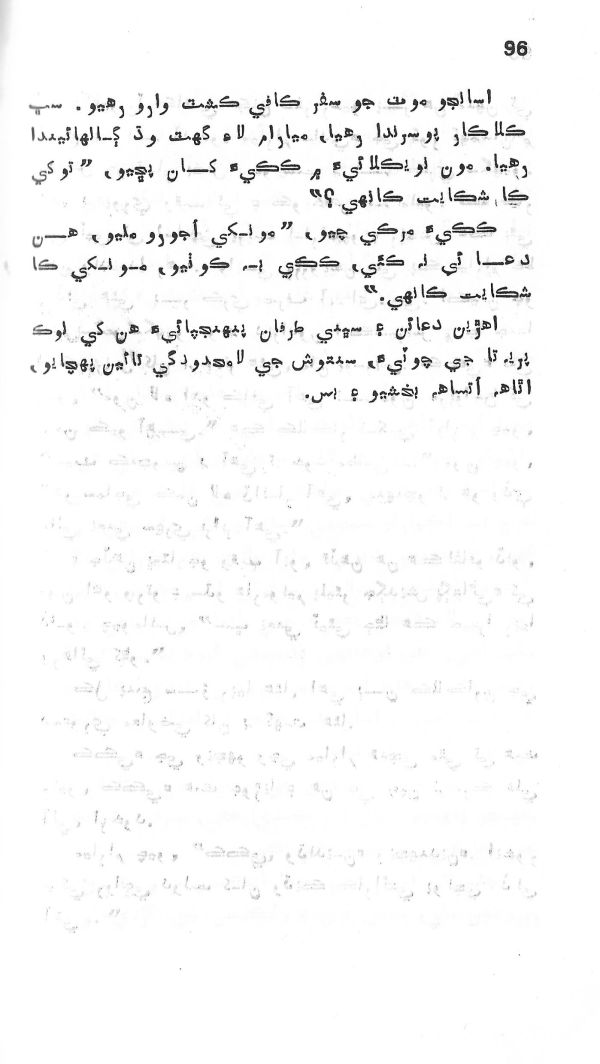 96
اسانجو موٽ جو سفر ڪافي ڪشٽ وارو رهيو. سڀ
ڪلاڪار ٻوسرندا رهيا، ميارام لاءِ گهٽ وڌ ڳالهائيندا
رهيا. مون نويڪلائيءَ ۾ ڪڪيءَ کان پڇيو، ”توکي
ڪا شڪايت ڪانهي؟“
ڪڪيءَ مرڪي چيو، ”مونکي اُجورو مليو، هن
دعا ئي نه ڪئي، ڪڪي به ڪوٺيو، مونکي ڪا
شڪايت ڪانهي.“
اهڙين دعائن ۽ سڀني طرفان پنهنجپائيءَ هن کي لوڪ
پريتا جي چوٽيءَ، سنتوش جي لامحدودگي تائين پهچايو،
اٿاهه اُتساهه بخشيو ۽ بس.